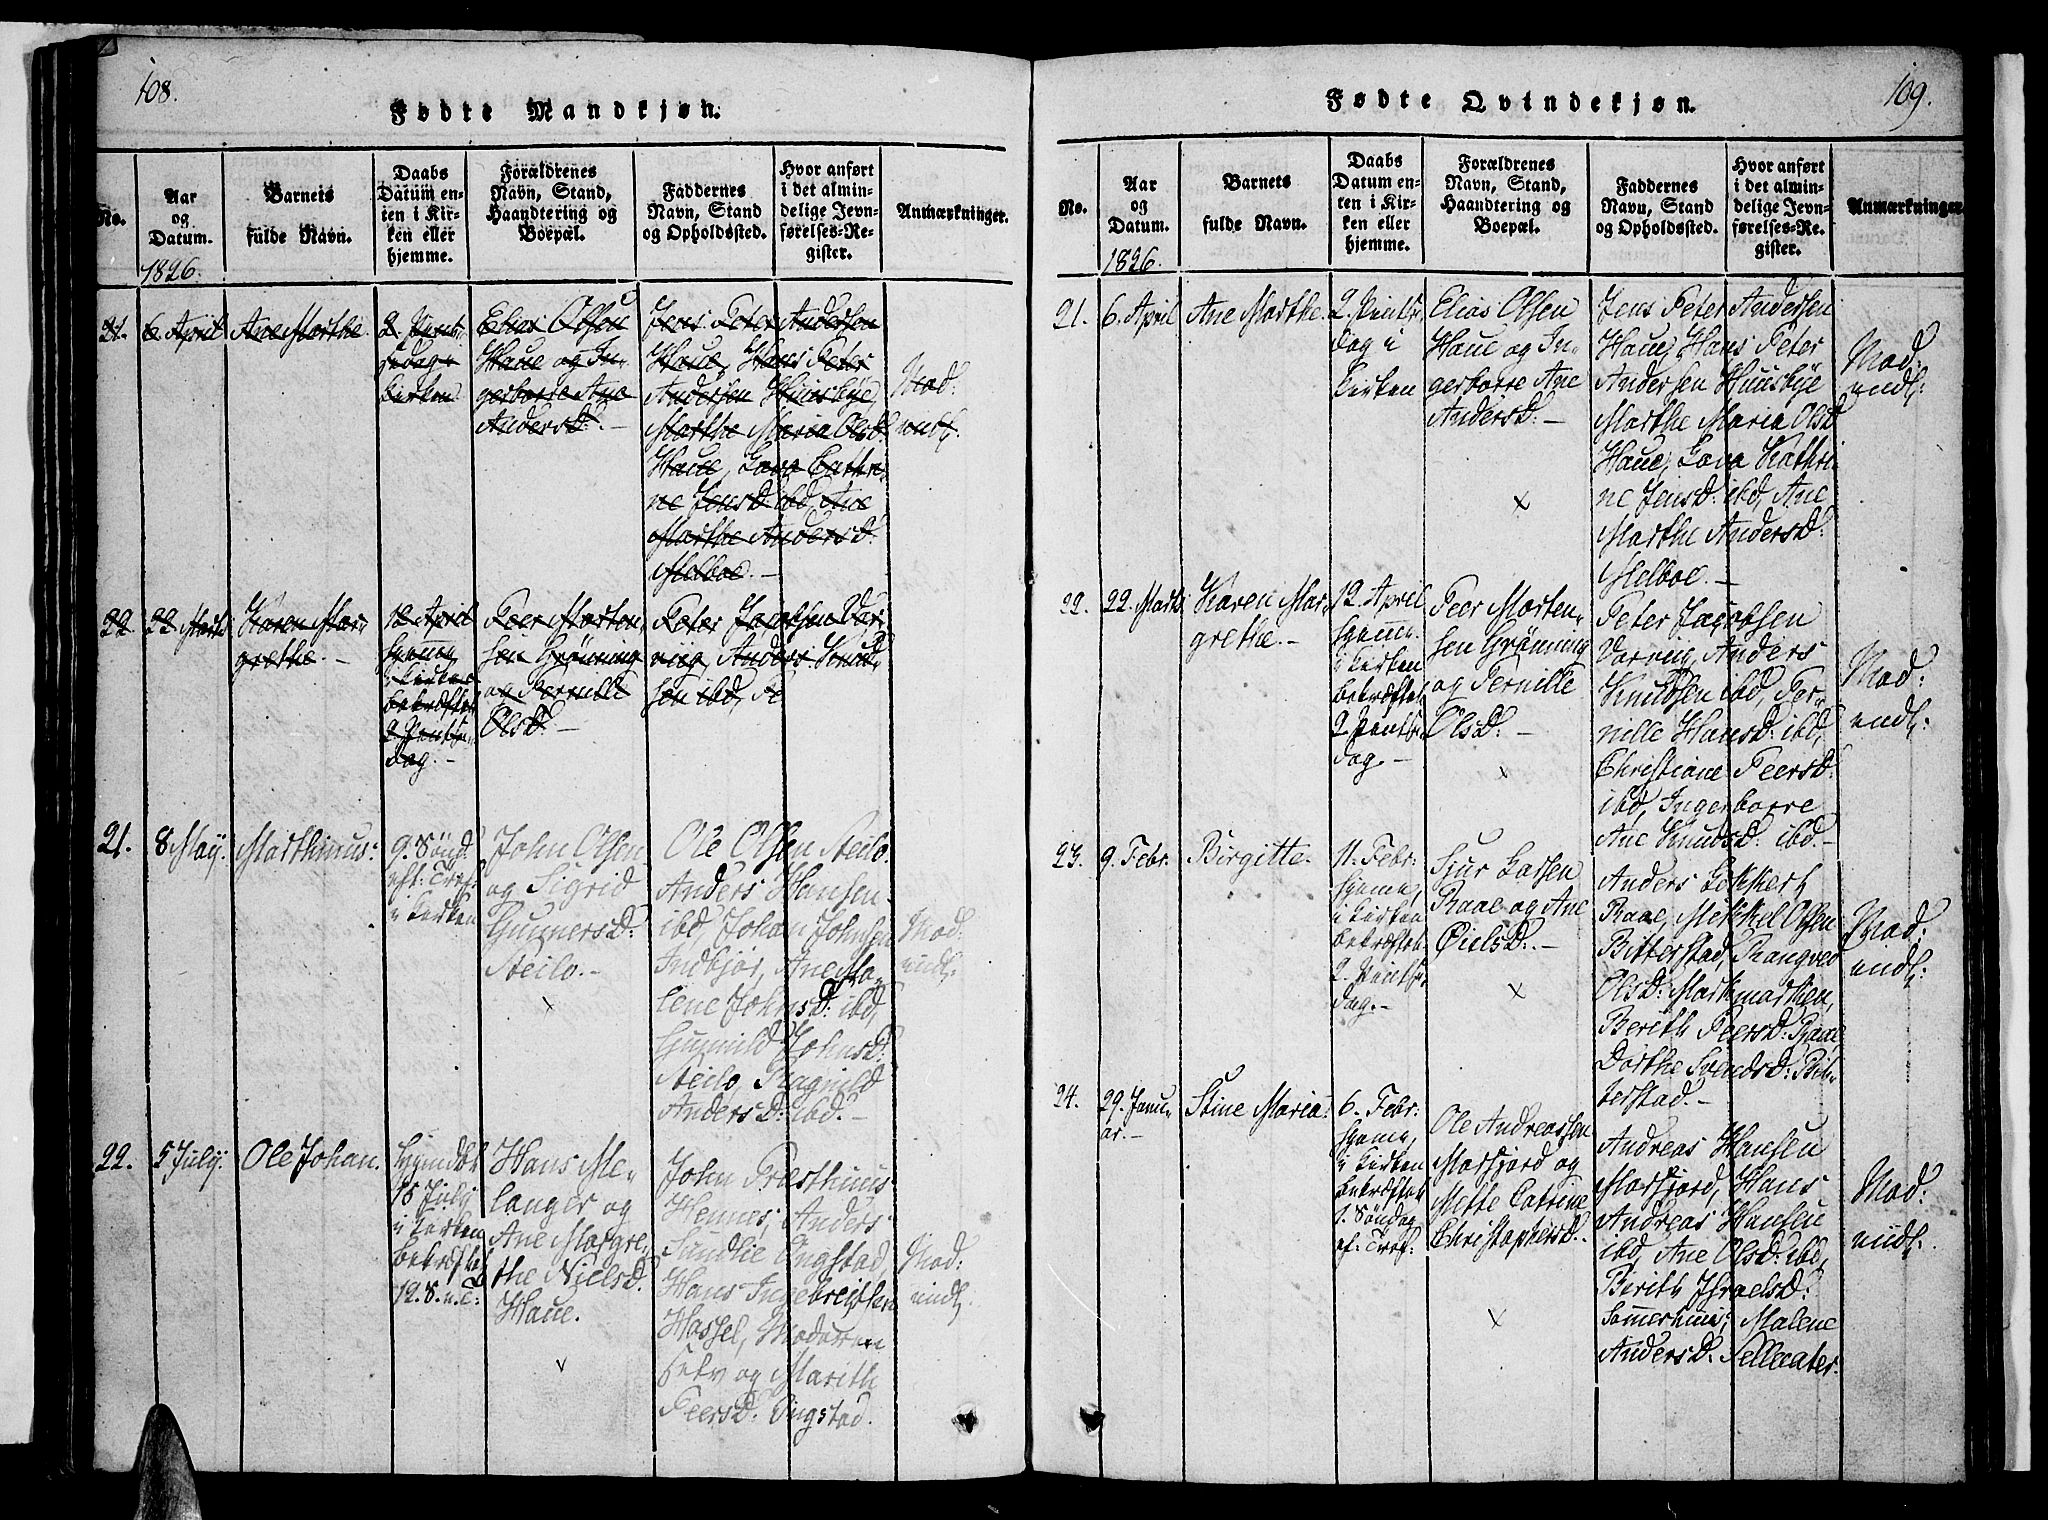 108.
Fødte Mandkjøn.
No.
Aar
og
Datum.
1826.
Barnets
fulde Navn.
Daabs
Datum en-
ten i Kir-
ken eller
hjemme.
Forældrenes
Navn, Stand,
Haandtering og
Boepæl.
Faddernes
Navn, Stand
og Opholdssted.
Hvor anført
i det almin-
delige Jevn-
førelses-Re-
gister.
Anmærkninger.
21.
6 April
Ane Marthe.
2. Pintse
dag i
Kirken
Elias Olsen
Haue og In-
gerborre Ane
Andersd: -
Jens Peter Andersen
Haue, Hans Peter
Andersen Huusbye,
Marthe Maria Olsd
Haue, Lava Cathri-
ne Jensd: ibd, Ane
Marthe Andersd:
Melboe. -
Mod:
indf.
22
22 Marts
Karen Mar-
grethe. -
12 April
hjemme
i Kirken
bekræftet
2. Pintse-
dag. -
Peer Morten-
sen Grönning
og Pernille
Olsd. -
Peter Jacobsen Var-
ving, Anders Knud-
sen ibd, Pe
21.
8 May.
Marthinus.
9. Sönd:
eft: Tref:
i Kirken
John Olsen
og Sigrid
Gunnersd:
Steilo. -
x
Ole Olsen Steilo.
Anders Hansen
ibd, Johan Johnsen
Indbjör, Ane Ma-
lene Johnsd: ibd,
Gunnild Johnsd:
Steilo, Ragnild
Andersd: ibd. -
Mod:
indf:
22.
5 July.
Ole Johan.
15 July
i Kirken
bekræftet
12. S. e. T:
Hans Me-
langer og
Ane Margre-
the Nielsd:
Haue.
v
John Presthuus
Hennes, Anders
Ingstad,
Hans Ingebreigtsen
Hassel, Moderen
selv og Marith
Peersd: Ingstad.
Mod:
indf.
109.
Fødte Qvindekjøn.
No.
Aar
og
Datum.
1826.
Barnets
fulde Navn.
Daabs
Datum en-
ten i Kir-
ken eller
hjemme.
Forældrenes
Navn, Stand,
Haandtering og
Boepæl.
Faddernes
Navn, Stand
og Opholdssted.
Hvor anført
i det almin-
delige Jevn-
førelses-Re-
gister.
Anmærkninger
21.
6. April
Ane Marthe.
2. Pintse-
dag i
Kirken
Elias Olsen
Haue og In-
gerborre Ane
Andersd: -
x
Jens Peter Andersen
Haue, Hans Peter
Andersen Huusbye
Marthe Maria Olsd
Haue, Lava Kathri-
ne Jensd: ibd, Ane
Marthe Andersd:
Melboe. -
Mod:
indf:
22.
22. Marts
Karen Mar-
grethe. -
12. April
hjemme.
i Kirken
bekræftet
2. Pintse-
dag. -
Peer Morten-
sen Grönning
og Pernille
Olsd: -
x
Peter Jacobsen
Varving, Anders
Knudsen ibd, Per-
nille Hansd: ibd,
Christiane Peersd:
ibd, Ingerborre
Ane Knudsd: ibd. -
Mod:
indf:
23.
9. Febr.
Birgitte.
11. Febr:
hjeme,
i Kirken
bekræftet
2. Pintse-
dag. -
Sjur Larsen
Raae og Ane
Öielsd. -
x
Anders Lokkert
Raae, Mekkel Olsen
Bitterstad, Rangved
Olsd: Markmarken,
Berith Peersd: Raae,
Dorthe Svendsd: Bit-
terstad. -
Mod:
indf:
24.
29. Janu-
ar. -
Stine Maria:
6. Febr:
hjeme,
i Kirken
bekræftet
1. Söndag
ef: Tref:
Ole Andreassen
Marfjord og
Mette Catrine
Christophersd. -
x
Andreas Hansen
Marfjord, Hans
Andreas Hansen
ibd, Ane Olsd: ibd,
Berith Israelsd:
Malene
Andersd:
Mod:
indf.